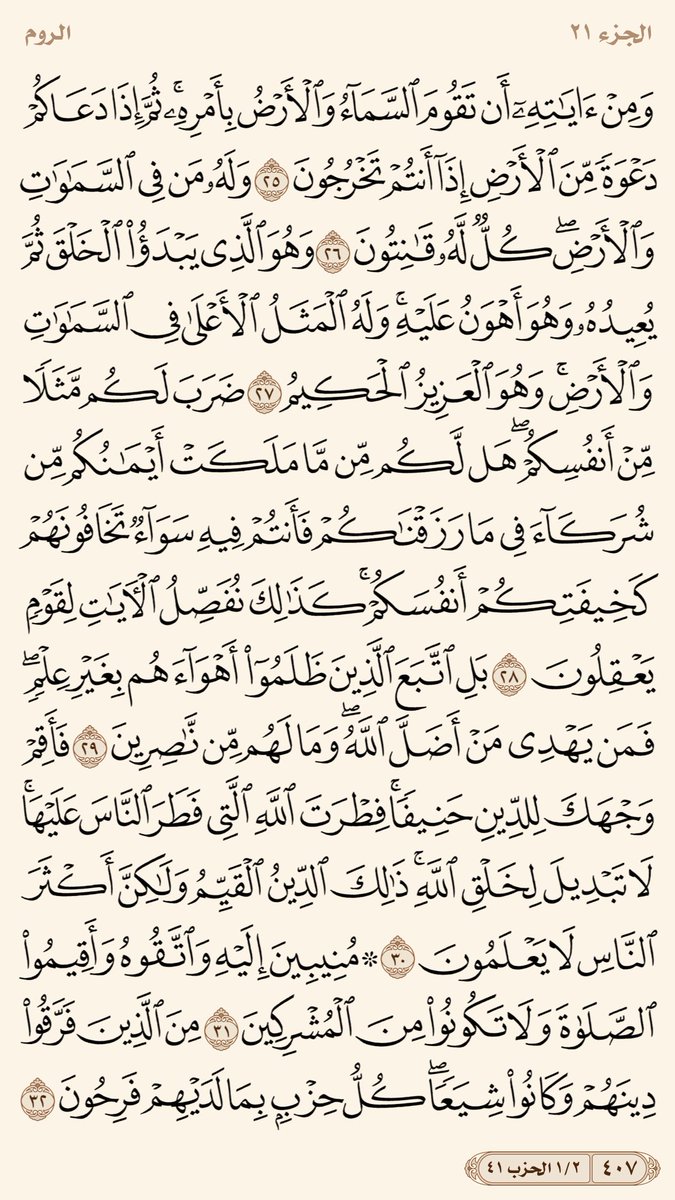 الجزء ٢١ الروم
وَمِنْ ءَايَٰتِهِۦٓ أَن تَقُومَ ٱلسَّمَآءُ وَٱلْأَرْضُ بِأَمْرِهِۦۚ ثُمَّ إِذَا دَعَاكُمْ
دَعْوَةً مِّنَ ٱلْأَرْضِ إِذَآ أَنتُمْ تَخْرُجُونَ ٢٥ وَلَهُۥ مَن فِى ٱلسَّمَٰوَٰتِ
وَٱلْأَرْضِۖ كُلٌّ لَّهُۥ قَٰنِتُونَ ٢٦ وَهُوَ ٱلَّذِى يَبْدَؤُا۟ ٱلْخَلْقَ ثُمَّ
يُعِيدُهُۥ وَهُوَ أَهْوَنُ عَلَيْهِۚ وَلَهُ ٱلْمَثَلُ ٱلْأَعْلَىٰ فِى ٱلسَّمَٰوَٰتِ
وَٱلْأَرْضِۚ وَهُوَ ٱلْعَزِيزُ ٱلْحَكِيمُ ٢٧ ضَرَبَ لَكُم مَّثَلًا
مِّنْ أَنفُسِكُمْۖ هَل لَّكُم مِّن مَّا مَلَكَتْ أَيْمَٰنُكُم مِّن
شُرَكَآءَ فِى مَا رَزَقْنَٰكُمْ فَأَنتُمْ فِيهِ سَوَآءٌ تَخَافُونَهُمْ
كَخِيفَتِكُمْ أَنفُسَكُمْۚ كَذَٰلِكَ نُفَصِّلُ ٱلْـَٔايَٰتِ لِقَوْمٍ
يَعْقِلُونَ ٢٨ بَلِ ٱتَّبَعَ ٱلَّذِينَ ظَلَمُوٓا۟ أَهْوَآءَهُم بِغَيْرِ عِلْمٍۖ
فَمَن يَهْدِى مَنْ أَضَلَّ ٱللَّهُۖ وَمَا لَهُم مِّن نَّٰصِرِينَ ٢٩ فَأَقِمْ
وَجْهَكَ لِلدِّينِ حَنِيفًاۚ فِطْرَتَ ٱللَّهِ ٱلَّتِى فَطَرَ ٱلنَّاسَ عَلَيْهَاۚ
لَا تَبْدِيلَ لِخَلْقِ ٱللَّهِۚ ذَٰلِكَ ٱلدِّينُ ٱلْقَيِّمُ وَلَٰكِنَّ أَكْثَرَ
ٱلنَّاسِ لَا يَعْلَمُونَ ٣٠ * مُنِيبِينَ إِلَيْهِ وَٱتَّقُوهُ وَأَقِيمُوا۟
ٱلصَّلَوٰةَ وَلَا تَكُونُوا۟ مِنَ ٱلْمُشْرِكِينَ ٣١ مِنَ ٱلَّذِينَ فَرَّقُوا۟
دِينَهُمْ وَكَانُوا۟ شِيَعًاۖ كُلُّ حِزْبٍۭ بِمَا لَدَيْهِمْ فَرِحُونَ ٣٢
٤٠٧ ١/٢ الحزب ٤١